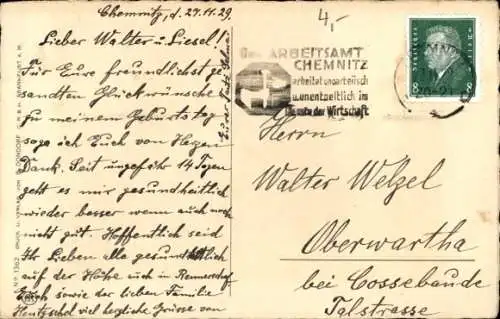 Chemnitz, d. 27.11.29.
Lieber Walter u. Liesel!
Für Eure freundlichst ge-
sandten Glückwünsche
zu meinem Geburtstag
sage ich Euch von Herzen
Dank. Seit ungefähr 14 Tagen
geht es mir gesundheitlich
wieder besser wenn auch noch
nicht gut. Hoffentlich seid
Ihr Lieben alle gesundheitlich
auf der Höhe auch in Rennersdorf
Euch sowie der lieben Familie
Hentzschel viel herzliche Grüsse von
Eure
4,-
ARBEITSAMT
CHEMNITZ
arbeitet unparteiisch
u. unentgeltlich im
Dienste der Wirtschaft
Deutsches Reich
8 8
Herrn
Walter Welzel
Oberwartha
bei Cossebaude
Talstrasse